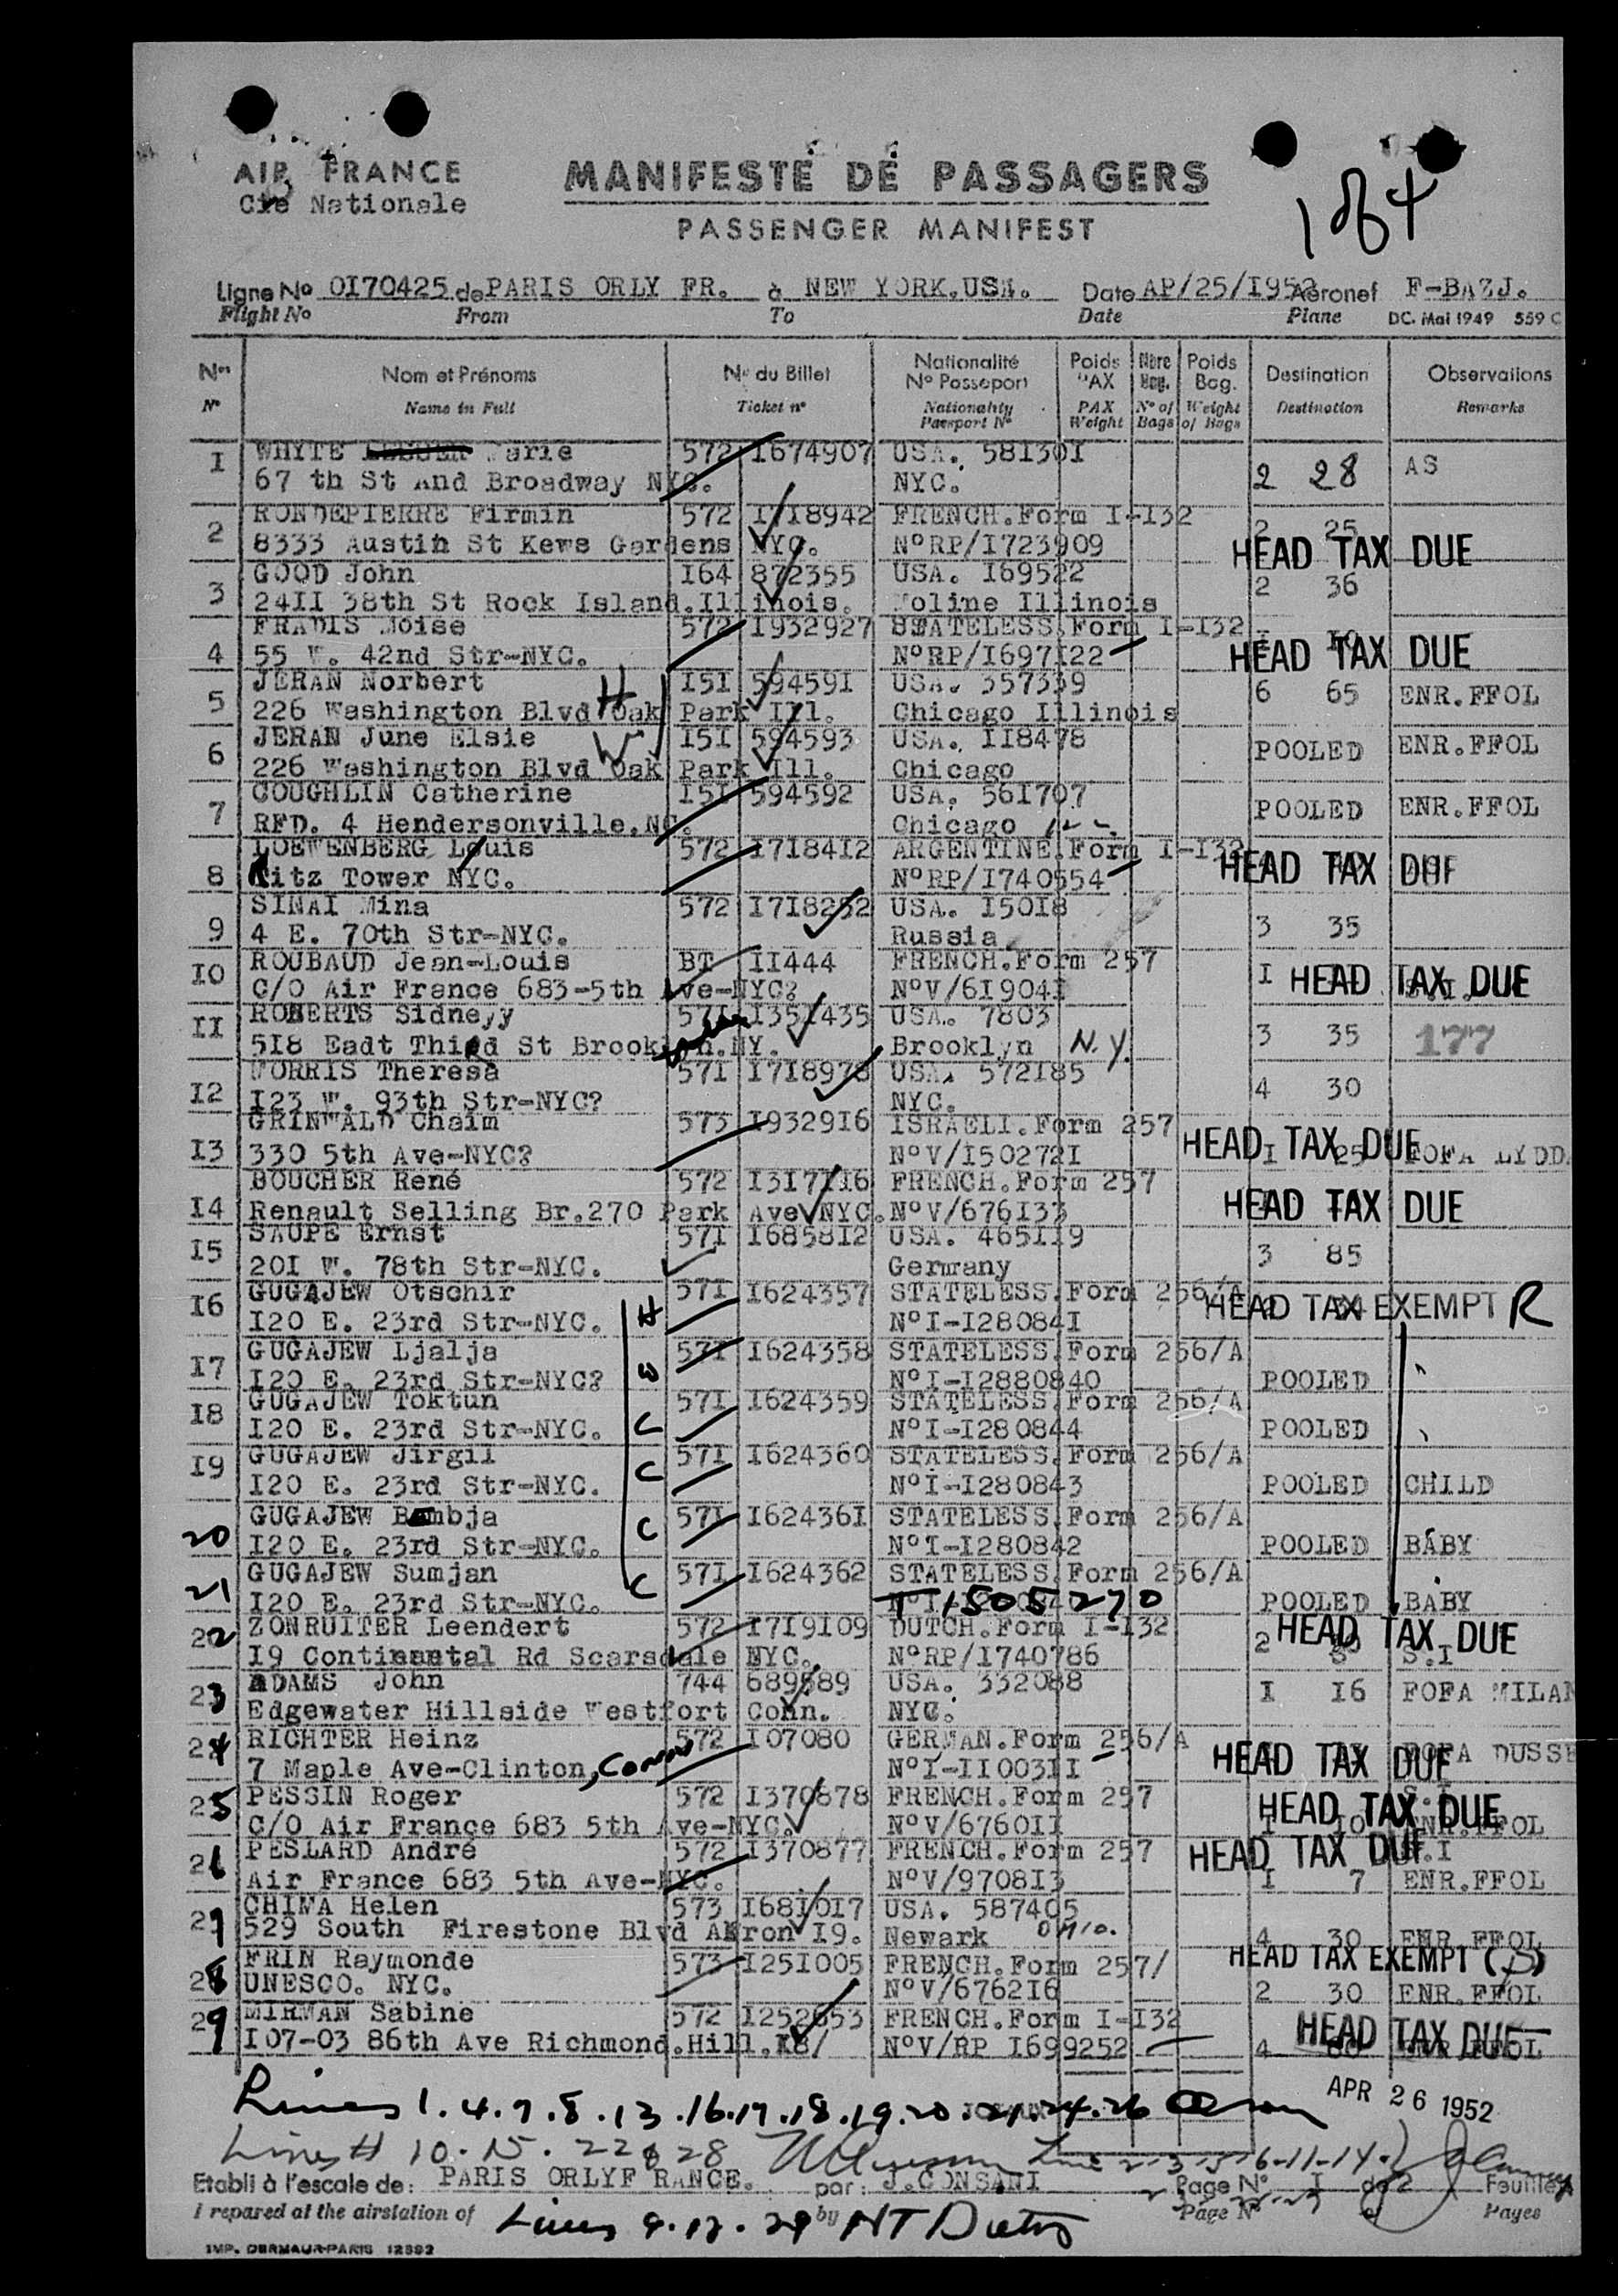 AIR FRANCE
Cie Nationale
MANIFESTE DE PASSAGERS
PASSENGER MANIFEST
1 of 4
Ligne No OI70425 de PARIS ORLY FR. à NEW YORK.USA. Date AP/25/I952 Aéronef F-BAZJ.
Flight No From To Date Plane DC. Mai 1949 559 C
Nos Nom et Prénoms No du Billet Nationalité No Passeport Poids PAX Nbre Bag. Poids Bag. Destination Observations
No Name in Full Ticket no Nationality Passport No PAX Weight No of Bags Weight of Bags Destination Remarks
I WHYTE Marie 572 I674907 USA. 58I30I
67 th St And Broadway NYC. NYC. 2 28 AS
2 RONDEPIERRE Firmin 572 I7I8942 FRENCH.Form I-I32 2 25
8333 Austin St Kews Gardens NYC. NoRP/I723909 HEAD TAX DUE
3 GOOD John I64 872355 USA. I69522 2 36
24II 38th St Rock Island.Illinois. Moline Illinois
4 FRADIS Moise 572 I932927 STATELESS.Form I-I32
55 W. 42nd Str-NYC. NoRP/I697I22 HEAD TAX DUE
5 JERAN Norbert H I5I 59459I USA. 357339 6 65 ENR.FFOL
226 Washington Blvd Oak Park Ill. Chicago Illinois
6 JERAN June Elsie W I5I 594593 USA. II8478 POOLED ENR.FFOL
226 Washington Blvd Oak Park Ill. Chicago
7 COUGHLIN Catherine I5I 594592 USA. 56I707 POOLED ENR.FFOL
RFD. 4 Hendersonville.NC. Chicago
8 LOEWENBERG Louis 572 I7I84I2 ARGENTINE.Form I-I32
Ritz Tower NYC. NoRP/I740554 HEAD TAX DUE
9 SINAI Mina 572 I7I8252 USA. I50I8
4 E. 70th Str-NYC. Russia 3 35
IO ROUBAUD Jean-Louis BT II444 FRENCH.Form 257
C/O Air France 683-5th Ave-NYC? NoV/6I904I I HEAD TAX DUE
II ROBERTS Sidneyy 57I I35I435 USA. 7803
5I8 Eadt Third St Brooklyn.NY. Brooklyn N.Y. 3 35 177
I2 MORRIS Theresa 57I I7I8978 USA. 572I85
I23 W. 93th Str-NYC? NYC. 4 30
I3 GRINWALD Chaim 573 I9329I6 ISRAELI.Form 257
330 5th Ave-NYC? NoV/I50272I HEAD TAX DUE I 25 FOFA LYDDA
I4 BOUCHER René 572 I3I7II6 FRENCH.Form 257
Renault Selling Br.270 Park Ave NYC. NoV/676I33 HEAD TAX DUE
I5 SAUPE Ernst 57I I6858I2 USA. 465II9
20I W. 78th Str-NYC. Germany 3 85
I6 GUGAJEW Otschir 57I I624357 STATELESS.Form 256/A
I20 E. 23rd Str-NYC. H NoI-I28084I HEAD TAX EXEMPT R
I7 GUGAJEW Ljalja 57I I624358 STATELESS.Form 256/A
I20 E. 23rd Str-NYC? W NoI-I2880840 POOLED
I8 GUGAJEW Toktun 57I I624359 STATELESS.Form 256/A
I20 E. 23rd Str-NYC. C NoI-I280844 POOLED
I9 GUGAJEW Jirgli 57I I624360 STATELESS.Form 256/A
I20 E. 23rd Str-NYC. C NoI-I280843 POOLED CHILD
20 GUGAJEW Bembja 57I I62436I STATELESS.Form 256/A
I20 E. 23rd Str-NYC. C NoI-I280842 POOLED BABY
21 GUGAJEW Sumjan 57I I624362 STATELESS.Form 256/A
I20 E. 23rd Str-NYC. C T1505270 POOLED BABY
22 ZONRUITER Leendert 572 I7I9I09 DUTCH.Form I-I32
I9 Continental Rd Scarsdale NYC. NoRP/I740786 2 HEAD TAX DUE S.I
23 ADAMS John 744 689589 USA. 332088
Edgewater Hillside Westfort Conn. NYC. I I6 FOFA MILAN
24 RICHTER Heinz 572 I07080 GERMAN.Form 256/A
7 Maple Ave-Clinton, Conn NoI-II003II HEAD TAX DUE FOFA DUSSE
25 PESSIN Roger 572 I370878 FRENCH.Form 257 S.I
C/O Air France 683 5th Ave-NYC. NoV/6760II HEAD TAX DUE I IO ENR.FFOL
26 PESLARD André 572 I370877 FRENCH.Form 257 HEAD TAX DUE S.I
Air France 683 5th Ave-NYC. NoV/9708I3 I 7 ENR.FFOL
27 CHIMA Helen 573 I68I0I7 USA. 587405
529 South Firestone Blvd Akron I9. Newark OHIO. 4 30 ENR.FFOL
28 FRIN Raymonde 573 I25I005 FRENCH.Form 257/ HEAD TAX EXEMPT
UNESCO. NYC. NoV/6762I6 2 30 ENR.FFOL
29 MIRMAN Sabine 572 I252653 FRENCH.Form I-I32 HEAD TAX DUE
I07-03 86th Ave Richmond.Hill. NoV/RP I699252 4
Lines 1.4.7.8.13.16.17.18.19.20.21.24.26
APR 26 1952
Lines # 10.15.22 & 28
Etabli à l'escale de: PARIS ORLYF RANCE. par: J.CONSANI Page No I de 2 Feuilles
Prepared at the airstation of by Page No of Pages
IMP. DERMAUR-PARIS 12592